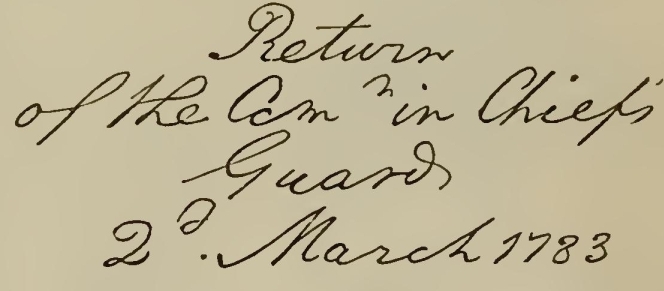 Return
of the Com^n in Chief's
Guard
2^d. March 1783